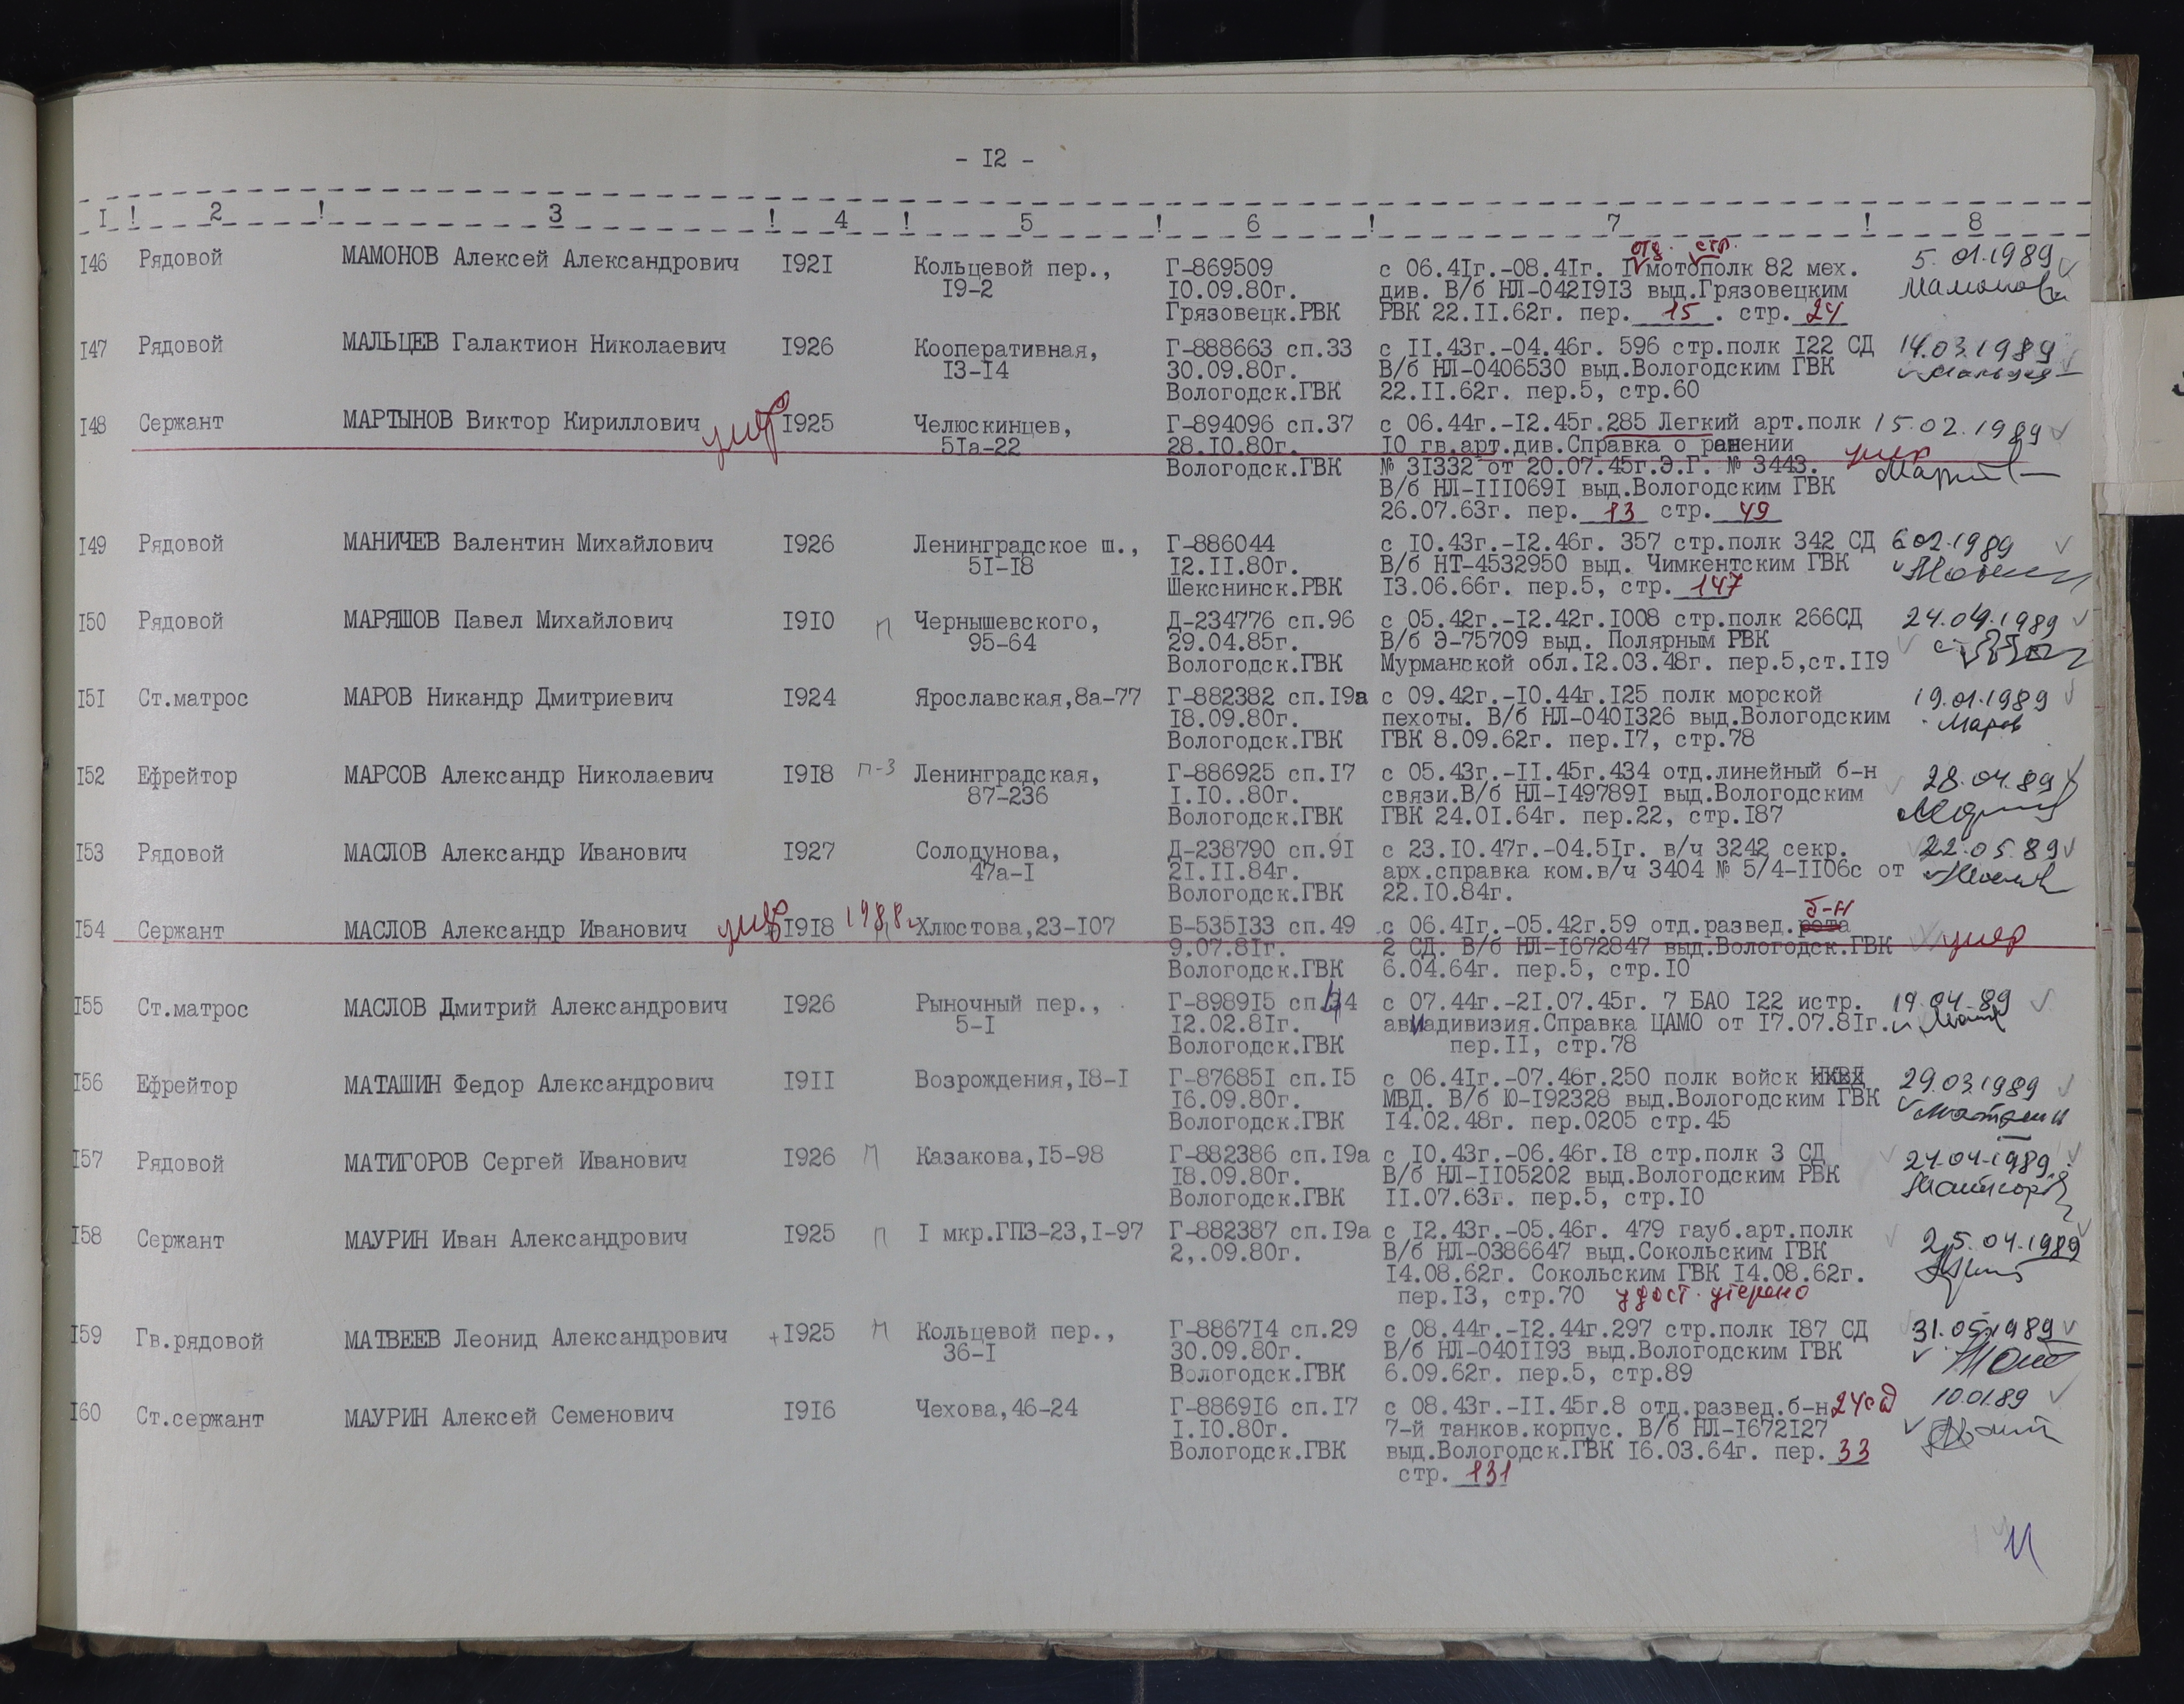 - I2 -
I ! 2 ! 3 ! 4 ! 5 ! 6 ! 7 ! 8
отд. стр.
I46 Рядовой МАМОНОВ Алексей Александрович I92I Кольцевой пер., Г-869509 с 06.4Iг.-08.4Iг. I мотополк 82 мех. 5.01.1989
I9-2 I0.09.80г. див. В/б НЛ-042I9I3 выд.Грязовецким Мамонов
Грязовецк.РВК РВК 22.II.62г. пер. 15 . стр. 24
I47 Рядовой МАЛЬЦЕВ Галактион Николаевич I926 Кооперативная, Г-888663 сп.33 с II.43г.-04.46г. 596 стр.полк I22 СД 14.03.1989
I3-I4 30.09.80г. В/б НЛ-0406530 выд.Вологодским ГВК
Вологодск.ГВК 22.II.62г. пер.5, стр.60
I48 Сержант МАРТЫНОВ Виктор Кириллович умер I925 Челюскинцев, Г-894096 сп.37 с 06.44г.-I2.45г.285 Легкий арт.полк 15.02.1989
5Iа-22 28.I0.80г. I0 гв.арт.див.Справка о ранении умер
Вологодск.ГВК № 3I332 от 20.07.45г.Э.Г. № 3443.
В/б НЛ-III069I выд.Вологодским ГВК
26.07.63г. пер. 13 стр. 49
I49 Рядовой МАНИЧЕВ Валентин Михайлович I926 Ленинградское ш., Г-886044 с I0.43г.-I2.46г. 357 стр.полк 342 СД 6.02.1989
5I-I8 I2.II.80г. В/б НТ-4532950 выд. Чимкентским ГВК
Шекснинск.РВК I3.06.66г. пер.5, стр. 147
I50 Рядовой МАРЯШОВ Павел Михайлович I9I0 п Чернышевского, Д-234776 сп.96 с 05.42г.-I2.42г.I008 стр.полк 266СД 24.04.1989
95-64 29.04.85г. В/б Э-75709 выд. Полярным РВК
Вологодск.ГВК Мурманской обл.I2.03.48г. пер.5,ст.II9
I5I Ст.матрос МАРОВ Никандр Дмитриевич I924 Ярославская,8а-77 Г-882382 сп.I9а с 09.42г.-I0.44г.I25 полк морской 19.01.1989
I8.09.80г. пехоты. В/б НЛ-040I326 выд.Вологодским Маров
Вологодск.ГВК ГВК 8.09.62г. пер.I7, стр.78
I52 Ефрейтор МАРСОВ Александр Николаевич I9I8 п-3 Ленинградская, Г-886925 сп.I7 с 05.43г.-II.45г.434 отд.линейный б-н 28.04.89
87-236 I.I0..80г. связи.В/б НЛ-I49789I выд.Вологодским
Вологодск.ГВК ГВК 24.0I.64г. пер.22, стр.I87
I53 Рядовой МАСЛОВ Александр Иванович I927 Солодунова, Д-238790 сп.9I с 23.I0.47г.-04.5Iг. в/ч 3242 секр. 22.05.89
47а-I 2I.II.84г. арх.справка ком.в/ч 3404 № 5/4-II06с от
Вологодск.ГВК 22.I0.84г.
б-н
I54 Сержант МАСЛОВ Александр Иванович умер I9I8 1988г Хлюстова,23-I07 Б-535I33 сп.49 с 06.4Iг.-05.42г.59 отд.развед.рота
9.07.8Iг. 2 СД. В/б НЛ-I672847 выд.Вологодск.ГВК умер
Вологодск.ГВК 6.04.64г. пер.5, стр.I0
I55 Ст.матрос МАСЛОВ Дмитрий Александрович I926 Рыночный пер., Г-8989I5 сп.44 с 07.44г.-2I.07.45г. 7 БАО I22 истр. 19.04-89
5-I I2.02.8Iг. авиадивизия.Справка ЦАМО от I7.07.8Iг.
Вологодск.ГВК пер.II, стр.78
I56 Ефрейтор МАТАШИН Федор Александрович I9II Возрождения,I8-I Г-87685I сп.I5 с 06.4Iг.-07.46г.250 полк войск НКВД 29.03.1989
I6.09.80г. МВД. В/б Ю-I92328 выд.Вологодским ГВК Маташин
Вологодск.ГВК I4.02.48г. пер.0205 стр.45
I57 Рядовой МАТИГОРОВ Сергей Иванович I926 п Казакова,I5-98 Г-882386 сп.I9а с I0.43г.-06.46г.I8 стр.полк 3 СД 24-04-1989
I8.09.80г. В/б НЛ-II05202 выд.Вологодским РВК
Вологодск.ГВК II.07.63г. пер.5, стр.I0
I58 Сержант МАУРИН Иван Александрович I925 п I мкр.ГПЗ-23,I-97 Г-882387 сп.I9а с I2.43г.-05.46г. 479 гауб.арт.полк 25.04.1989
2,.09.80г. В/б НЛ-0386647 выд.Сокольским ГВК
I4.08.62г. Сокольским ГВК I4.08.62г.
пер.I3, стр.70 удост. утеряно
I59 Гв.рядовой МАТВЕЕВ Леонид Александрович +I925 п Кольцевой пер., Г-8867I4 сп.29 с 08.44г.-I2.44г.297 стр.полк I87 СД 31.05.1989
36-I 30.09.80г. В/б НЛ-040II93 выд.Вологодским ГВК
Вологодск.ГВК 6.09.62г. пер.5, стр.89
I60 Ст.сержант МАУРИН Алексей Семенович I9I6 Чехова,46-24 Г-8869I6 сп.I7 с 08.43г.-II.45г.8 отд.развед.б-н 24сд 10.01.89
I.I0.80г. 7-й танков.корпус. В/б НЛ-I672I27
Вологодск.ГВК выд.Вологодск.ГВК I6.03.64г. пер. 33
стр. 131